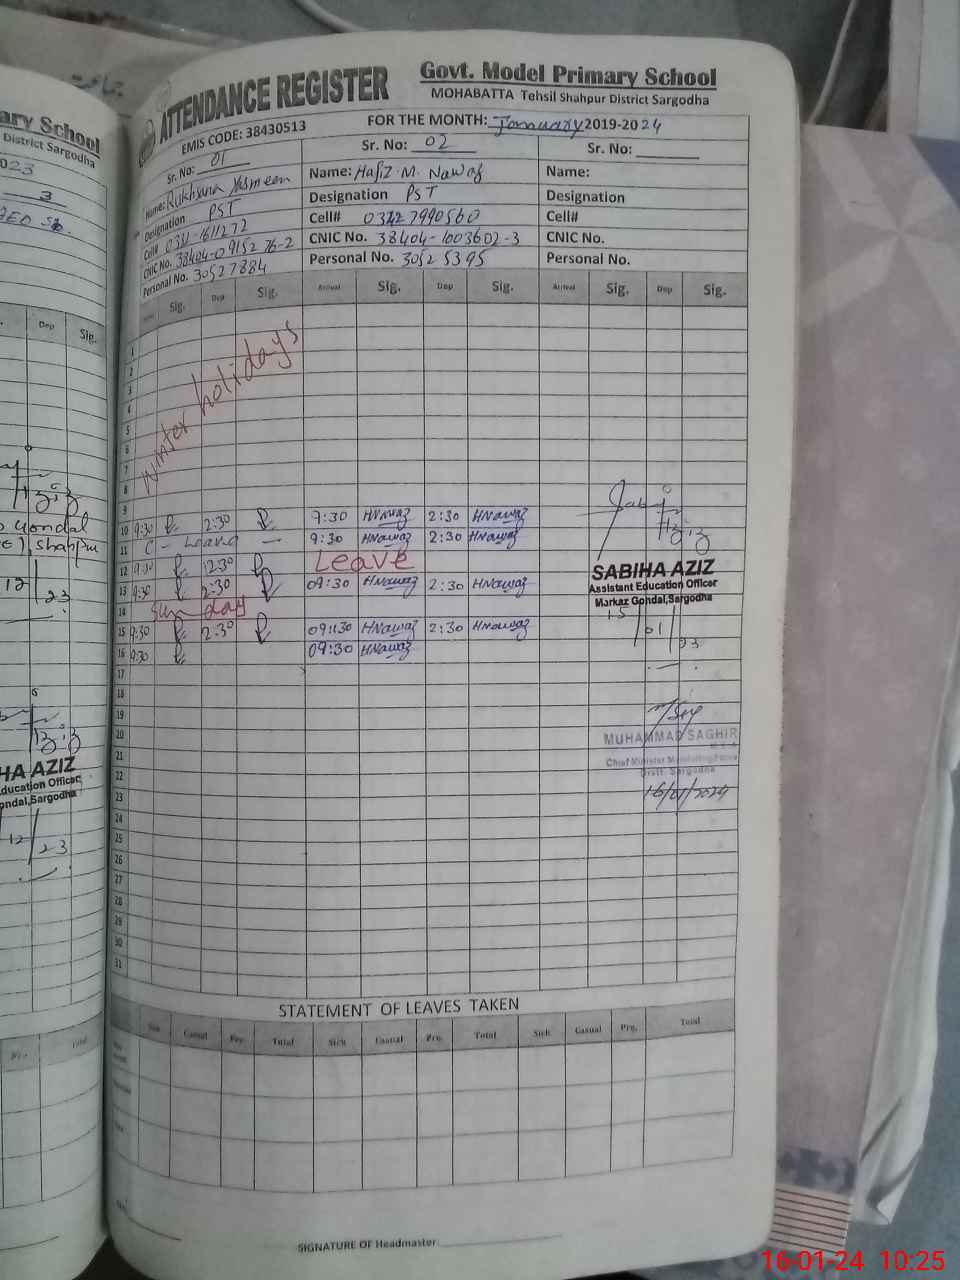 ary School
District Sargodha
023
3
ATTENDANCE REGISTER
Govt. Model Primary School
MOHABATTA Tehsil Shahpur District Sargodha
EMIS CODE: 38430513
FOR THE MONTH: January 2019-2024
Sr. No: 01
Sr. No: 02
Sr. No:
Name: Rukhsana Yasmeen
Name: Hafiz M. Nawaz
Name:
Designation PST
Designation PST
Designation
Cell# 0331-1611272
Cell# 03427990560
Cell#
CNIC No. 38404-0915276-2
CNIC No. 38404-1003602-3
CNIC No.
Personal No. 30527884
Personal No. 30525395
Personal No.
Dep Sig.
Sig. Dep Sig. Arrival Sig. Dep Sig. Arrival Sig. Dep Sig.
1
2
3
4
5
6
7
8
Winter holidays
9
10 9:30 2:30 9:30 HNawaz 2:30 HNawaz
11 C - Leave - 9:30 HNawaz 2:30 HNawaz
12 9:30 2:30 Leave
13 9:30 2:30 09:30 HNawaz 2:30 HNawaz
14 Sunday
15 9:30 2:30 09:30 HNawaz 2:30 HNawaz
16 9:30 09:30 HNawaz
17
18
19
20
21
22
23
24
25
26
27
28
29
30
31
SABIHA AZIZ
Assistant Education Officer
Markaz Gondal,Sargodha
15/01/23
MUHAMMAD SAGHIR
Distt. Sargodha
16/01/2024
Gondal
Shahpur
12/23
HA AZIZ
ducation Officer
ondal,Sargodha
12/23
STATEMENT OF LEAVES TAKEN
Sick Casual Pre. Total Sick Casual Pre. Total Sick Casual Pre. Total
Pre. Total
SIGNATURE OF Headmaster
16-01-24 10:25